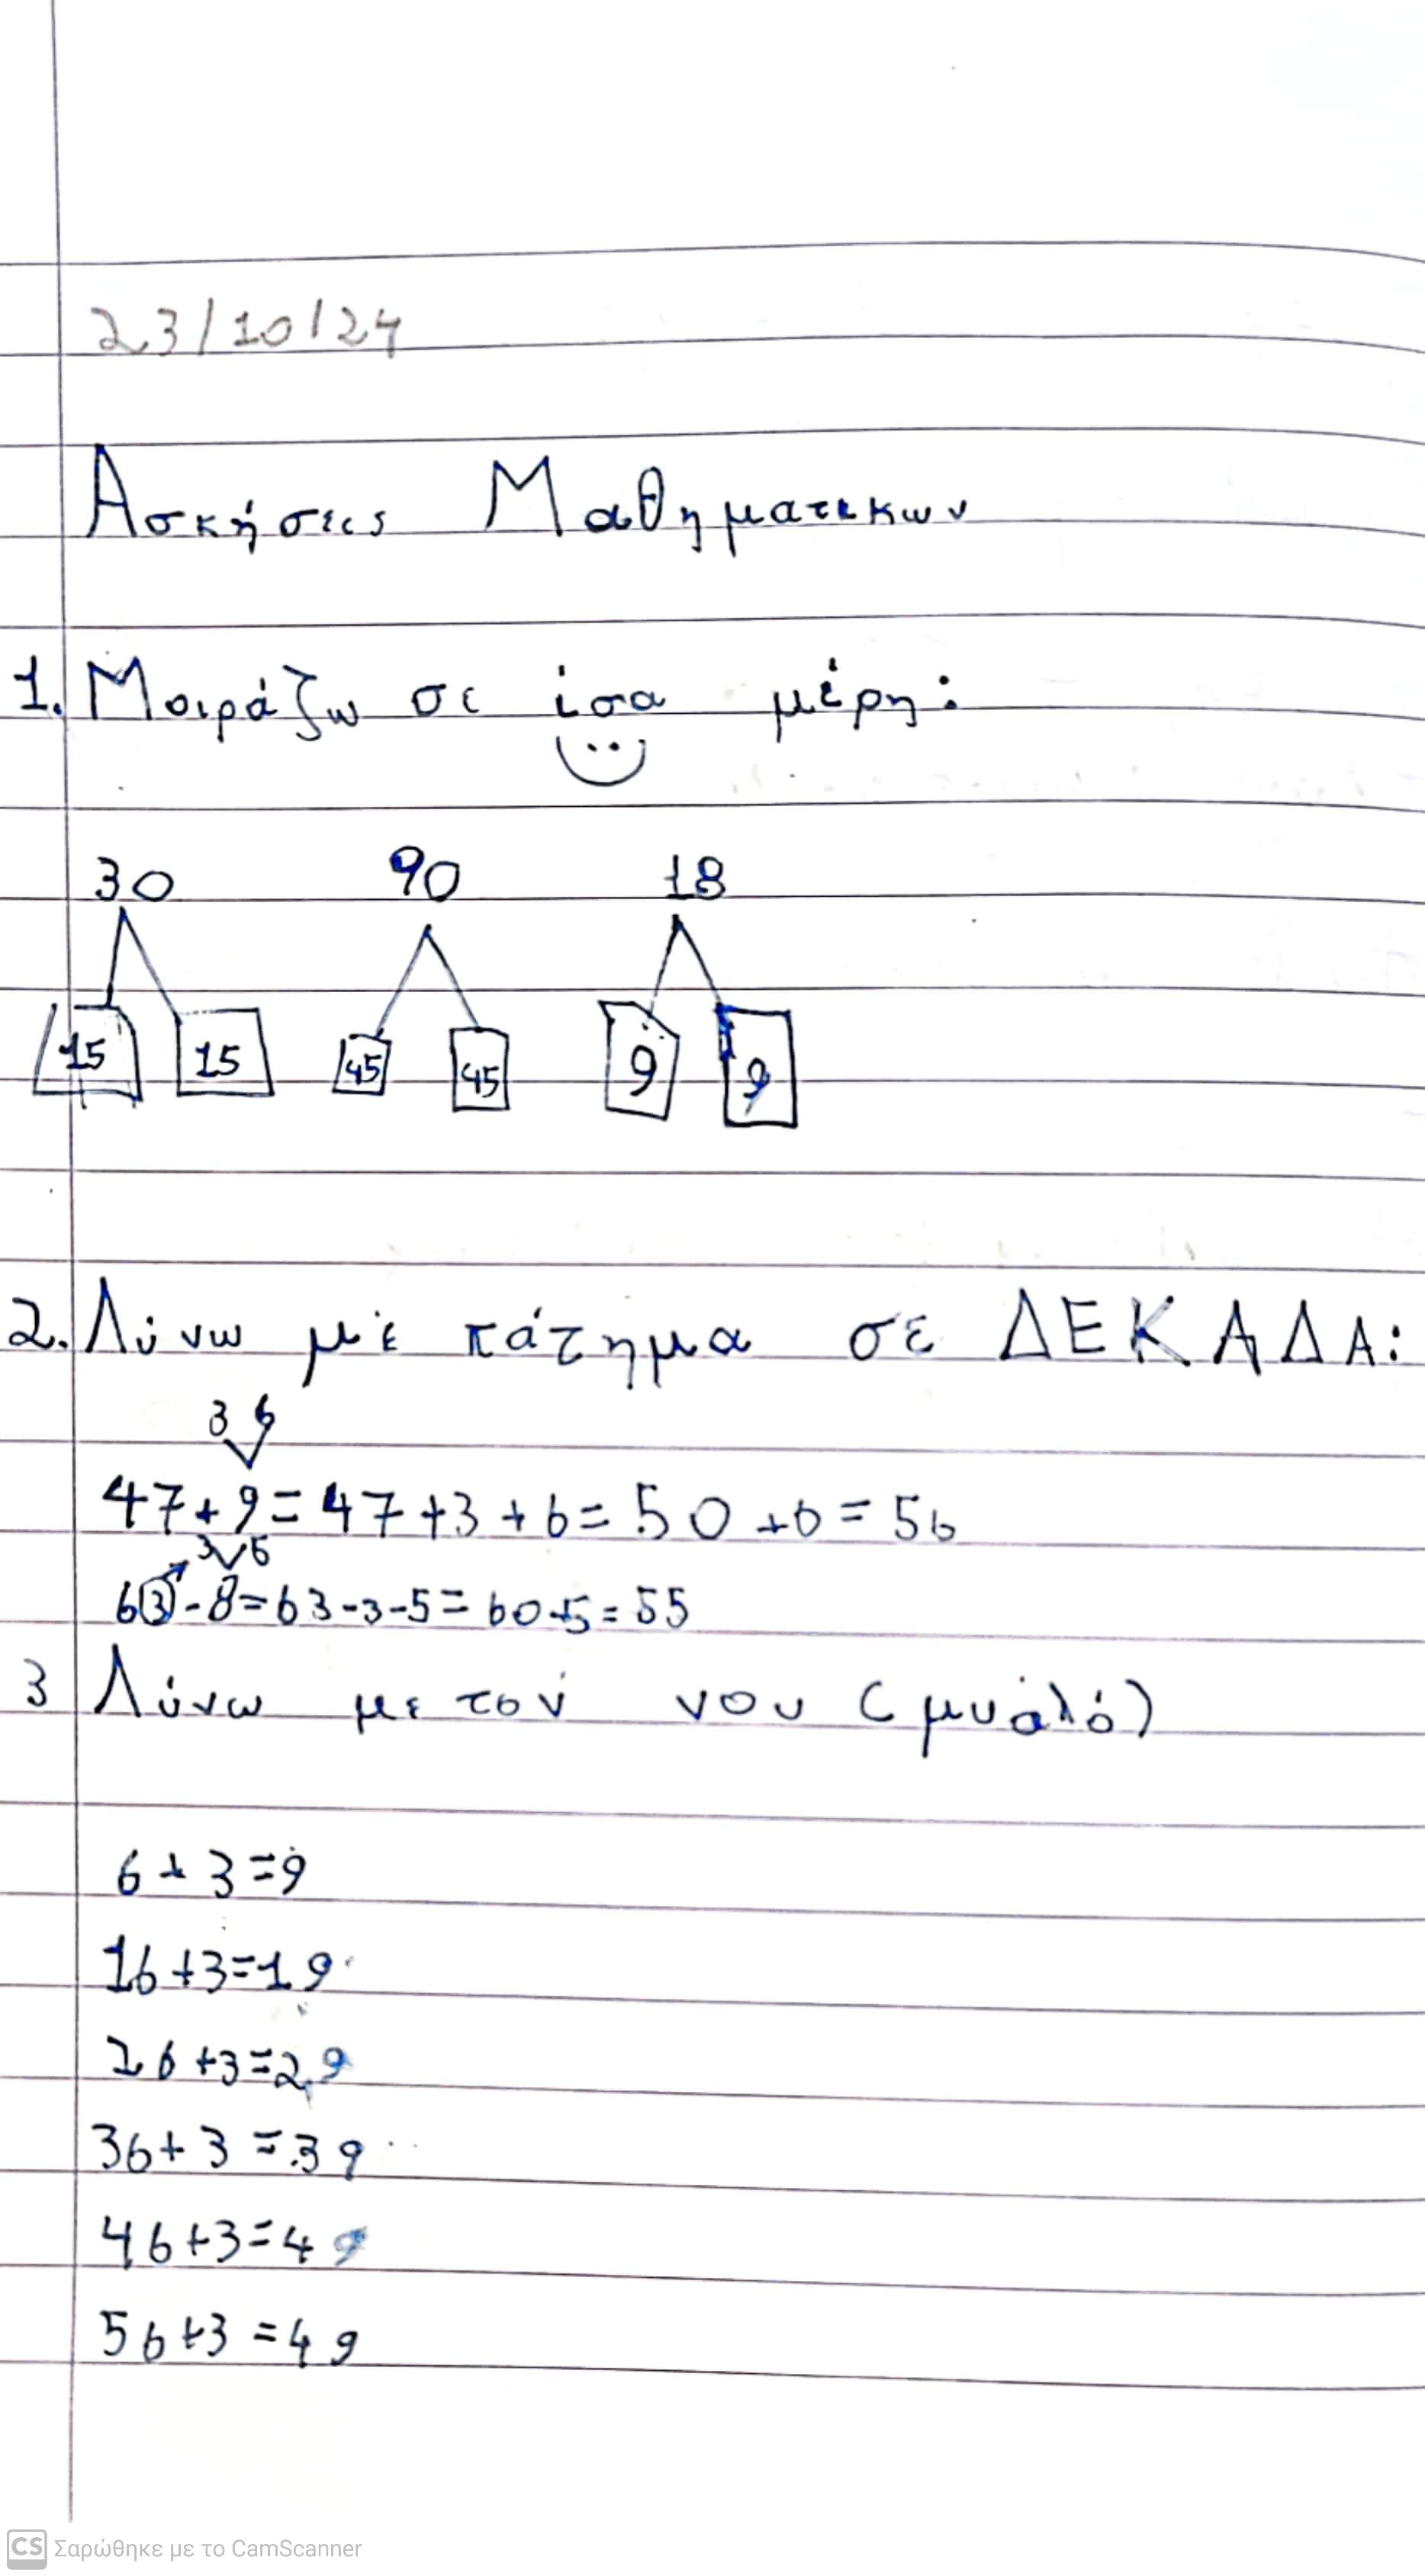 23/10/24
Ασκήσεις Μαθηματικων
1. Μοιράζω σε ίσα μέρη:
30 90 18
15 15 45 45 9 9
2. Λύνω με πάτημα σε ΔΕΚΑΔΑ:
3 6
47+9=47+3+6=50+6=56
3 5
63-8=63-3-5=60-5=55
3 Λύνω με τον νου (μυαλό)
6+3=9
16+3=19
26+3=29
36+3=39
46+3=49
56+3=49
CS Σαρώθηκε με το CamScanner